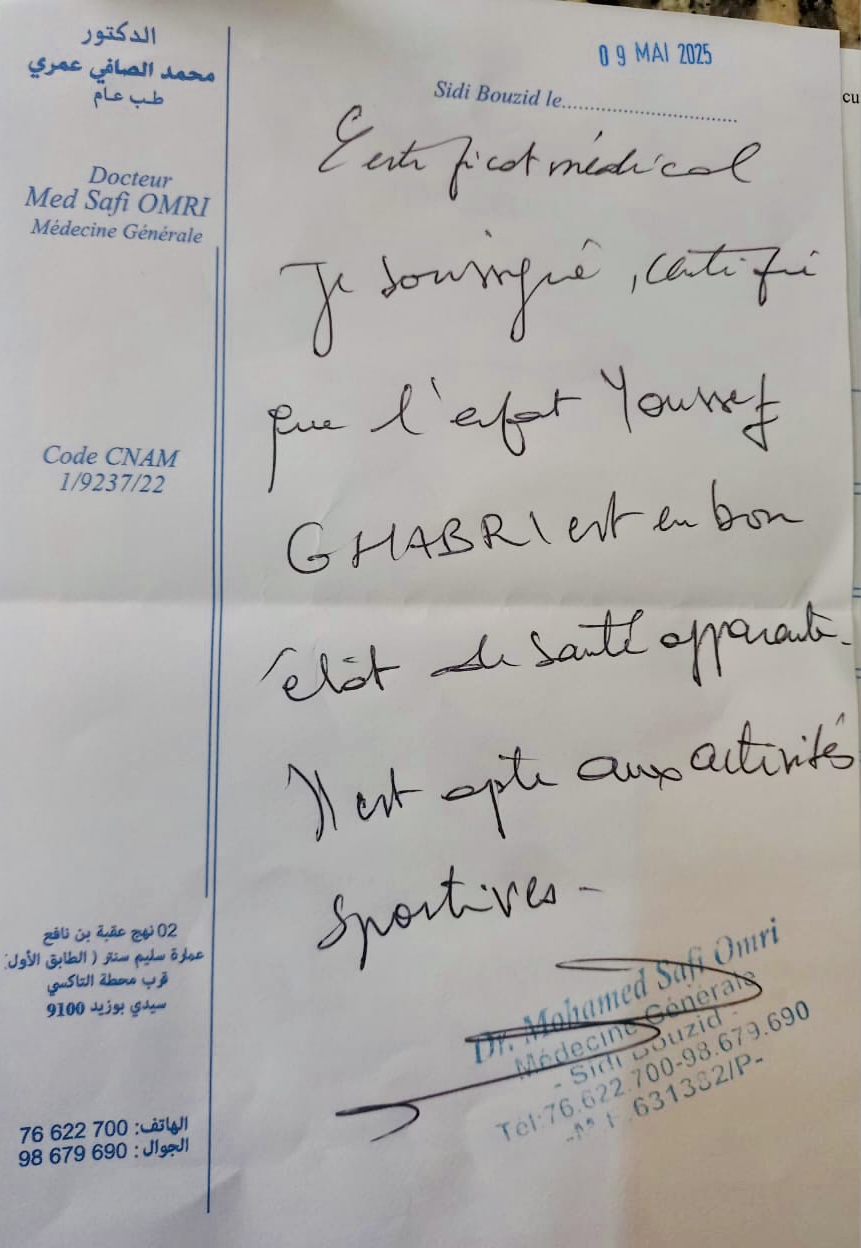 الدكتور
محمد الصافي عمري
طب عام
Docteur
Med Safi OMRI
Médecine Générale
Code CNAM
1/9237/22
09 MAI 2025
Sidi Bouzid le
Certificat médical
Je soussigné, certifié
que l'enfat Youssef
GHABRI est en bon
état de santé apparante.
Il est apte aux activités
sportives -
Dr. Mohamed Safi Omri
Médecine Générale
- Sidi Bouzid -
Tél:76.622.700-98.679.690
-M.F.:631332/P-
02 نهج عقبة بن نافع
عمارة سليم سنتر ( الطابق الأول)
قرب محطة التاكسي
سيدي بوزيد 9100
الهاتف: 700 622 76
الجوال: 690 679 98
cu